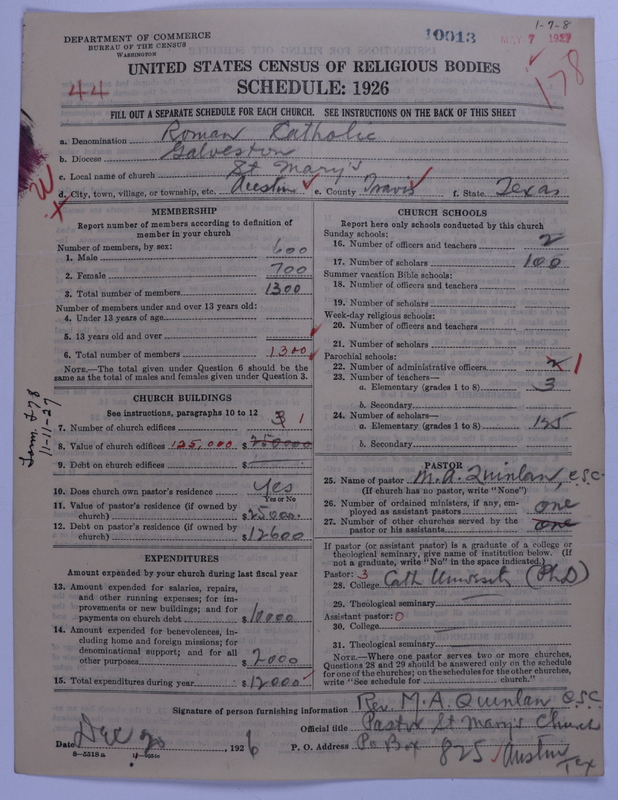 1-7-8
DEPARTMENT OF COMMERCE
BUREAU OF THE CENSUS
WASHINGTON
10013
MAY 7 1927
178
UNITED STATES CENSUS OF RELIGIOUS BODIES
44
SCHEDULE: 1926
FILL OUT A SEPARATE SCHEDULE FOR EACH CHURCH. SEE INSTRUCTIONS ON THE BACK OF THIS SHEET
a. Denomination Roman Catholic
b. Diocese Galveston
c. Local name of church St Mary's
d. City, town, village, or township, etc. Austin e. County Travis f. State Texas
MEMBERSHIP
Report number of members according to definition of member in your church
Number of members, by sex:
1. Male 600
2. Female 700
3. Total number of members 1300
Number of members under and over 13 years old:
4. Under 13 years of age
5. 13 years old and over
6. Total number of members 1300
NOTE.—The total given under Question 6 should be the same as the total of males and females given under Question 3.
CHURCH BUILDINGS
See instructions, paragraphs 10 to 12
7. Number of church edifices 3 1
8. Value of church edifices 125,000 $250000
9. Debt on church edifices $
10. Does church own pastor's residence Yes
Yes or No
11. Value of pastor's residence (if owned by church) $25000.
12. Debt on pastor's residence (if owned by church) $12600
EXPENDITURES
Amount expended by your church during last fiscal year
13. Amount expended for salaries, repairs, and other running expenses; for improvements or new buildings; and for payments on church debt $10000
14. Amount expended for benevolences, including home and foreign missions; for denominational support; and for all other purposes $2000
15. Total expenditures during year $12000
CHURCH SCHOOLS
Report here only schools conducted by this church
Sunday schools:
16. Number of officers and teachers 2
17. Number of scholars 100
Summer vacation Bible schools:
18. Number of officers and teachers
19. Number of scholars
Week-day religious schools:
20. Number of officers and teachers
21. Number of scholars
Parochial schools:
22. Number of administrative officers 2 1
23. Number of teachers—
a. Elementary (grades 1 to 8) 3
b. Secondary
24. Number of scholars—
a. Elementary (grades 1 to 8) 125
b. Secondary
PASTOR
25. Name of pastor M. A. Quinlan, C.S.C.
(If church has no pastor, write "None")
26. Number of ordained ministers, if any, employed as assistant pastors one
27. Number of other churches served by the pastor or his assistants one
If pastor (or assistant pastor) is a graduate of a college or theological seminary, give name of institution below. (If not a graduate, write "No" in the space indicated.)
Pastor: 3
28. College Cath University (PhD)
29. Theological seminary
Assistant pastor: 0
30. College
31. Theological seminary
NOTE.—Where one pastor serves two or more churches, Questions 28 and 29 should be answered only on the schedule for one of the churches; on the schedules for the other churches, write "See schedule for church."
Signature of person furnishing information Rev. M. A. Quinlan C.S.C.
Official title Pastor St Mary's Church
Date Dec 20, 1926 P. O. Address Po Box 825 Austin Tex
8—5518a
11-11-27